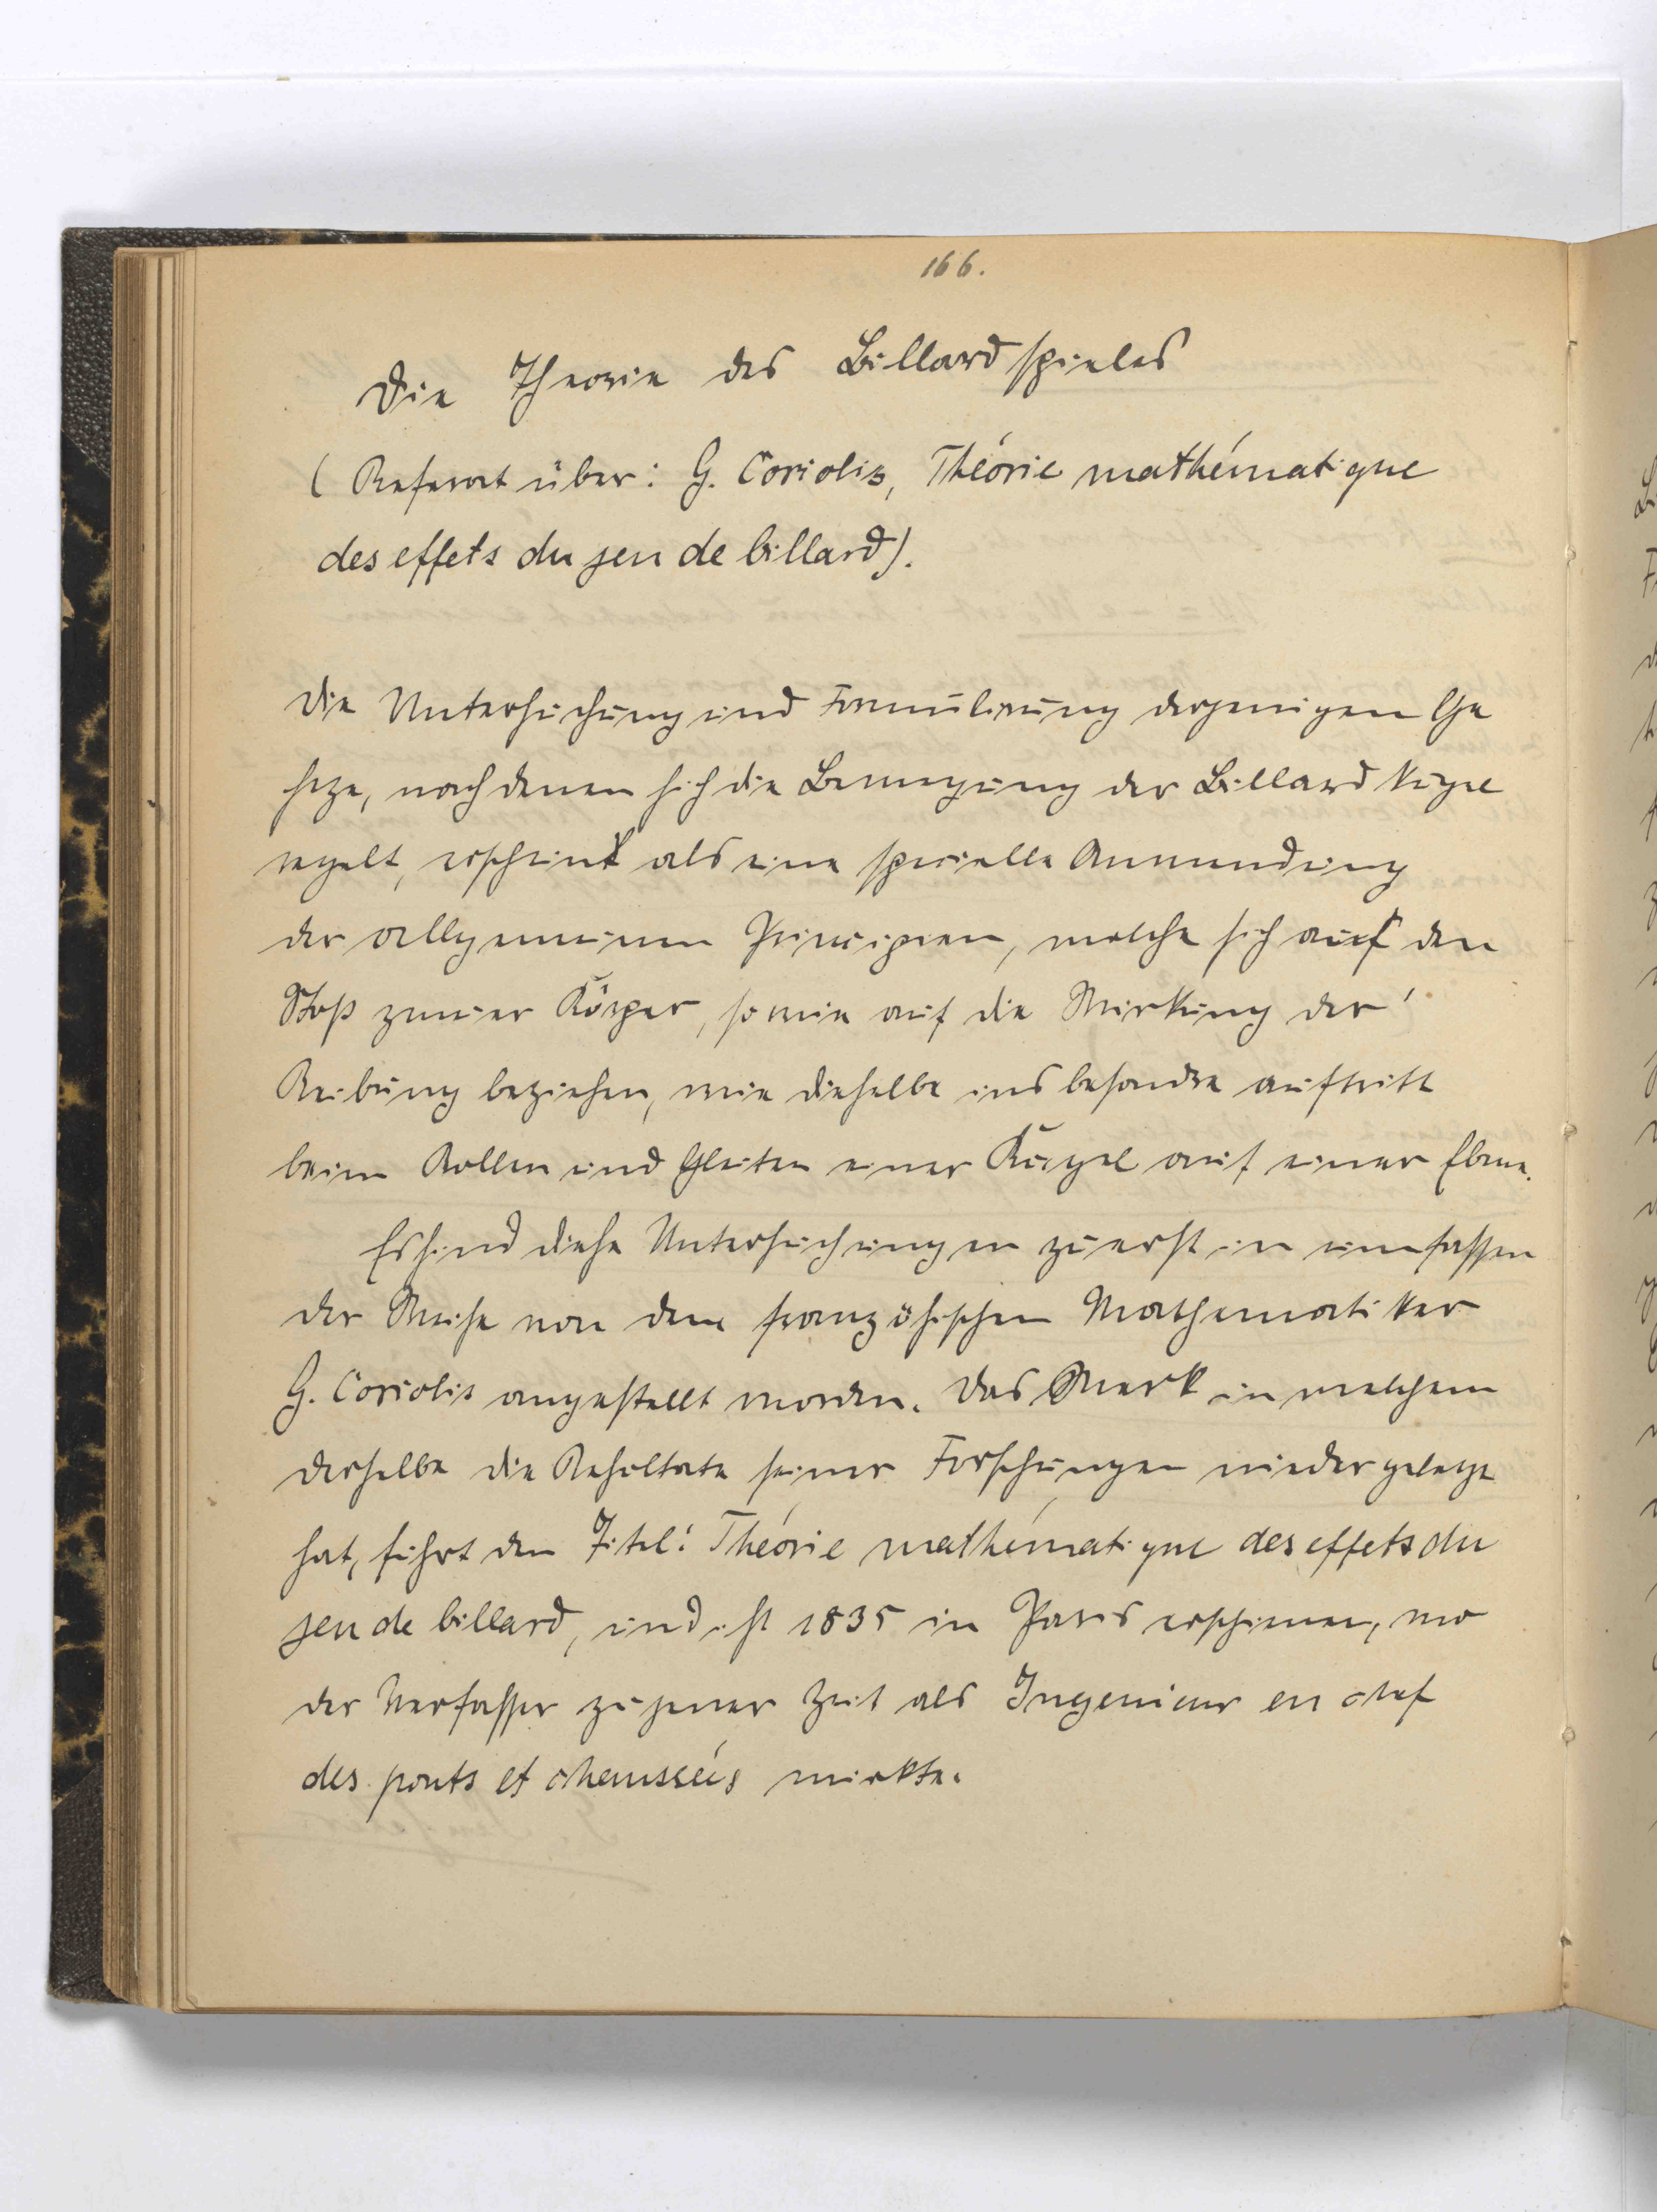 166.
Die Theorie des Billardspieles
(Referat über: G. Coriolis, Théorie mathématique
des effets du jeu de billard).
Die Untersuchung und Formulirung derjenigen Ge
seze, nach denen sich die Bewegung der Billardkugel
regelt, erscheint als eine specielle Anwendung
der allgemeinen Principien, welche sich auf den
Stoß zweier Körper, sowie auf die Wirkung der
Reibung beziehen, wie dieselbe insbesondre auftritt
beim Rollen und Gleiten einer Kugel auf einer Ebene.
Es sind diese Untersuchungen zuerst in umfassen
der Weise von dem französischen Mathematiker
G. Coriolis angestellt worden. Das Werk in welchem
derselbe die Resultate seiner Forschungen niedergelegt
hat, führt den Titel: Théorie mathématique des effets du
jeu de billard, und ist 1835 in Paris erschienen, wo
der Verfasser zu jener Zeit als Ingenieur en chef
des ponts et chaussées wirkte.